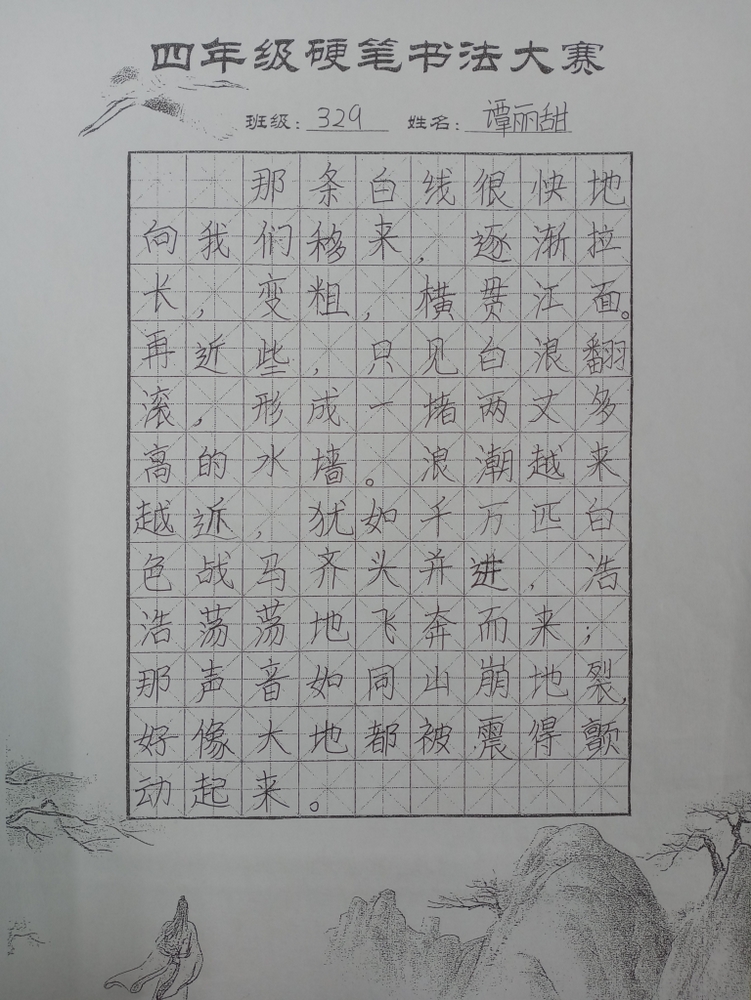 四年级硬笔书法大赛
班级：329 姓名：谭丽甜
那条白线很快地
向我们移来，逐渐拉
长，变粗，横贯江面。
再近些，只见白浪翻
滚，形成一堵两丈多
高的水墙。浪潮越来
越近，犹如千万匹白
色战马齐头并进，浩
浩荡荡地飞奔而来；
那声音如同山崩地裂，
好像大地都被震得颤
动起来。